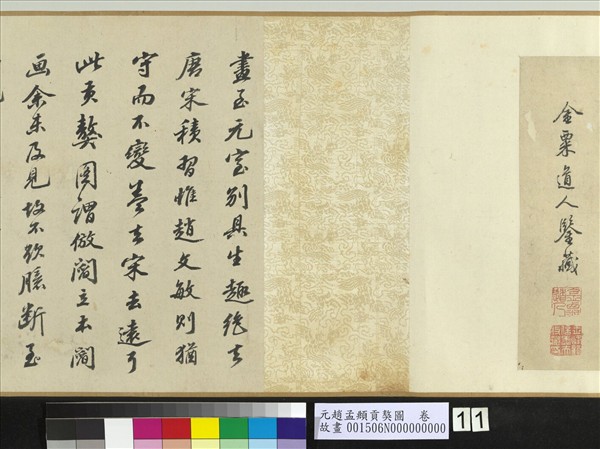 金粟道人鑒藏
畫至元室別具生趣絕去
唐宋積習惟趙文敏則猶
守而不變蓋去宋去遠耳
此貢獒圖謂倣閻立本閻
画余未及見故不欲臆斷至
元趙孟頫貢獒圖　卷
故畫 001506N000000000
11